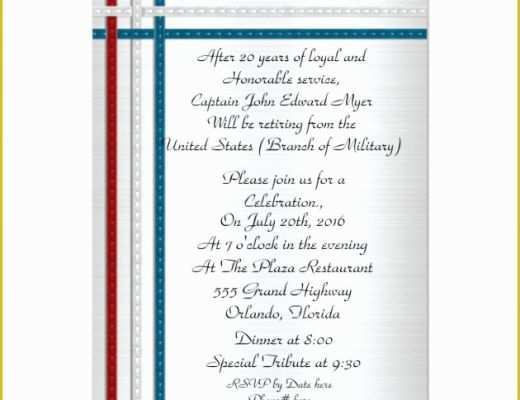 After 20 years of loyal and
Honorable service,
Captain John Edward Myer
Will be retiring from the
United States (Branch of Military)
Please join us for a
Celebration.,
On July 20th, 2016
At 7 o'clock in the evening
At The Plaza Restaurant
555 Grand Highway
Orlando, Florida
Dinner at 8:00
Special Tribute at 9:30
RSVP by Date here
Phone# here